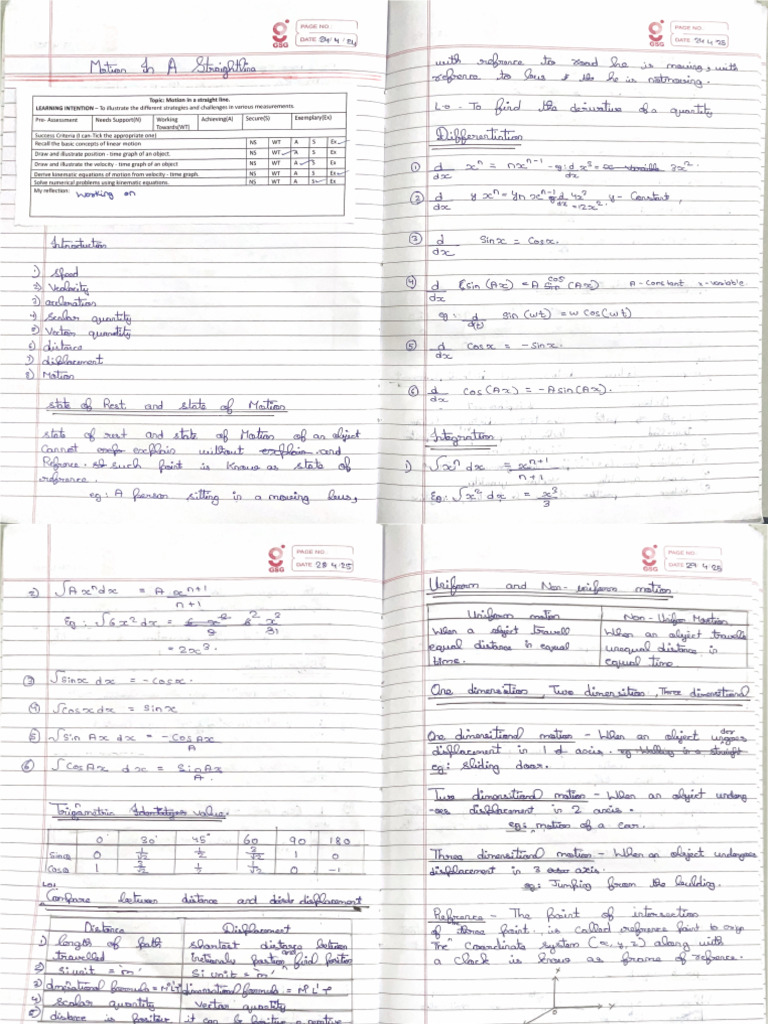 GSG
PAGE NO.:
DATE: 24/4/24
Motion In A Straightline
Topic: Motion in a straight line.
LEARNING INTENTION – To illustrate the different strategies and challenges in various measurements.
Pre- Assessment Needs Support(N) Working Towards(WT) Achieving(A) Secure(S) Exemplary(Ex)
Success Criteria (I can-Tick the appropriate one)
Recall the basic concepts of linear motion NS WT A S Ex
Draw and illustrate position - time graph of an object. NS WT A S Ex
Draw and illustrate the velocity - time graph of an object NS WT A S Ex
Derive kinematic equations of motion from velocity - time graph. NS WT A S Ex
Solve numerical problems using kinematic equations. NS WT A S Ex
My reflection: working on
Introduction
1) Speed
2) Velocity
3) accleration
4) Scalar quantity
5) Vector quantity
6) distance
7) displacement
8) Motion
State of Rest and state of Motion
State of rest and state of Motion of an object
Cannot explain without and
Refrence. such point is known as state of
refrence.
eg: A person sitting in a moving bus,
GSG
PAGE NO.:
DATE: 24.4.25
with refrence to road he is moving, with
refrence to bus he is not moving.
L.O - To find the derivative of a quantity
Differentiation
① d/dx xⁿ = nxⁿ⁻¹ eg: d/dx x³ = 3x².
② d/dx y xⁿ = yn xⁿ⁻¹ eg d/dx 4x³ = 12x². y - Constant,
③ d/dx Sinx = Cosx.
④ d/dx Sin (Ax) = A cos (Ax) A - Constant x - variable
eg: d/dt sin (wt) = w cos (wt)
⑤ d/dx Cosx = - Sinx.
⑥ d/dx cos (Ax) = - A sin (Ax).
Integration
1) √xⁿ dx = xⁿ⁺¹/n+1
Eg: √x² dx = x³/3
GSG
PAGE NO.:
DATE: 28.4.25
2) √A xⁿ dx = A xⁿ⁺¹/n+1
Eg: √6x² dx = 6² x³/31
= 2x³.
③ √sinx dx = - cosx.
④ √cosx dx = sinx
⑤ √Sin Ax dx = - Cos Ax/A
⑥ √Cos Ax dx = Sin Ax/A.
Trignametric value.
0° 30° 45° 60 90 180
Sinθ 0 1 0
Cosθ 1 0 -1
LO:
Compare between distance and displacement
Distance Displacement
1) length of path shortest distance between
travelled and find position
2) Si unit = 'm' Si unit = 'm'
3) dimensional formula = M°L¹T° dimensional formula = M°L¹T°
4) scalar quantity vector quantity
5) distance is positive it can be positive or negative
GSG
PAGE NO.:
DATE: 29.4.25
Uniform and Non-uniform motion
Uniform motion Non-Uniform Motion
When a object travell When an object travells
equal distance in equal unequal distance is
time. equal time.
One dimension, Two dimension, Three dimensional
One dimensitional motion - When an object undergoes
displacement in 1 axis.
eg: sliding door.
Two dimensitional motion - When an object undergo
-oes displacement in 2 axis.
egs motion of a car.
Three dimensitional motion - When an object undergoes
displacement in 3 axis.
eg: Jumping from the building.
Refrence - The point of intersection
of three point, is called refrence point to
The coordinate system (x, y, z) along with
a clock is know as frame of refrence.
0